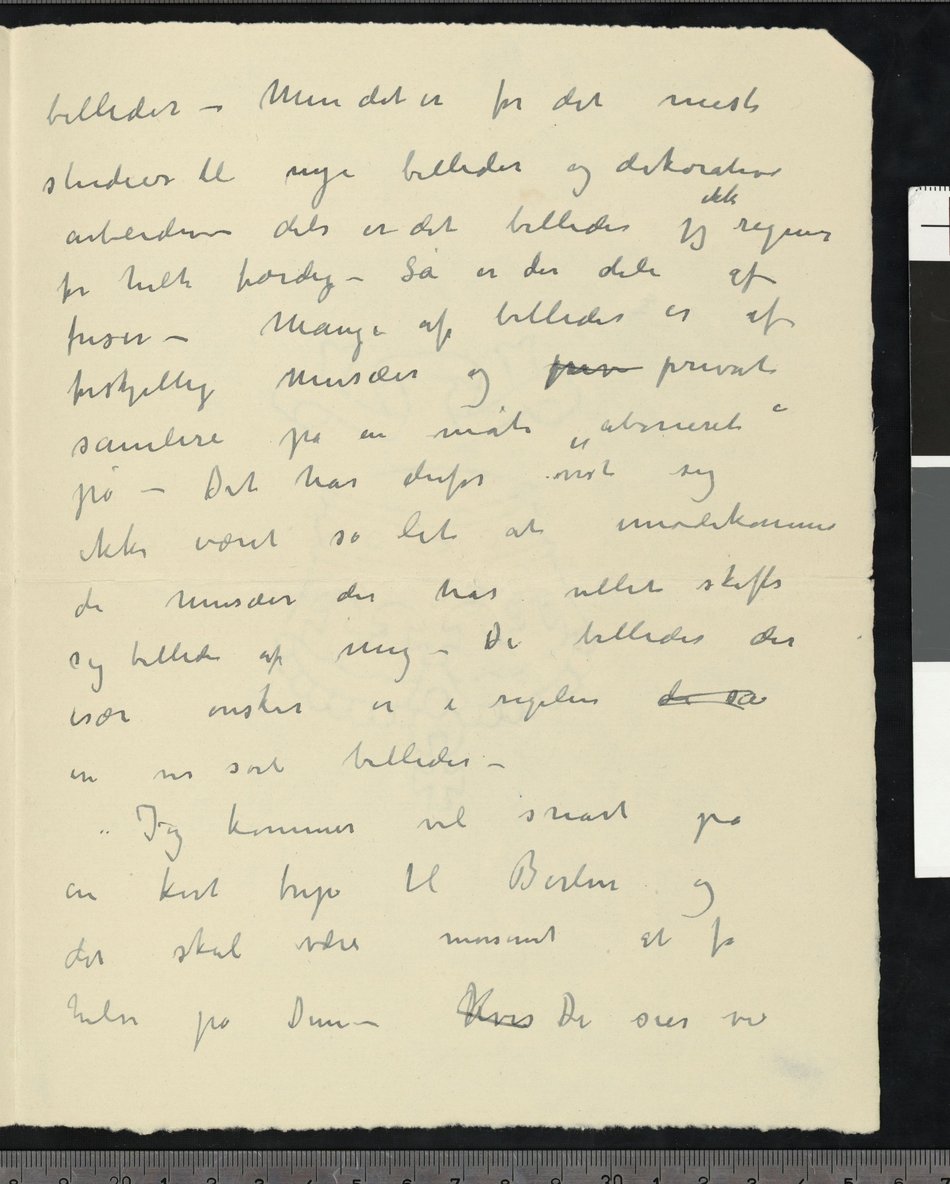 billeder – Men det er for det meste
studier til nye billeder og dekorative
arbeider – dels er det billeder jeg ikke regner
for helt færdig – Så er der dele af
friser – Mange af billeder er af
forskjellig Musæer og priv private
samlere på en måte „aboneret“
på – Det har derfor vist sig
ikke været så let at imødekomme
de Musæer der har villet skaffe
sig billeder af mig – De billeder der
især ønskes er i regelen de sa
en vis sort billeder –
Jeg kommer vel snart på
en kort trip til Berlin og
det skal være morsomt at få
hilse på Dem – Hvis De sier vi